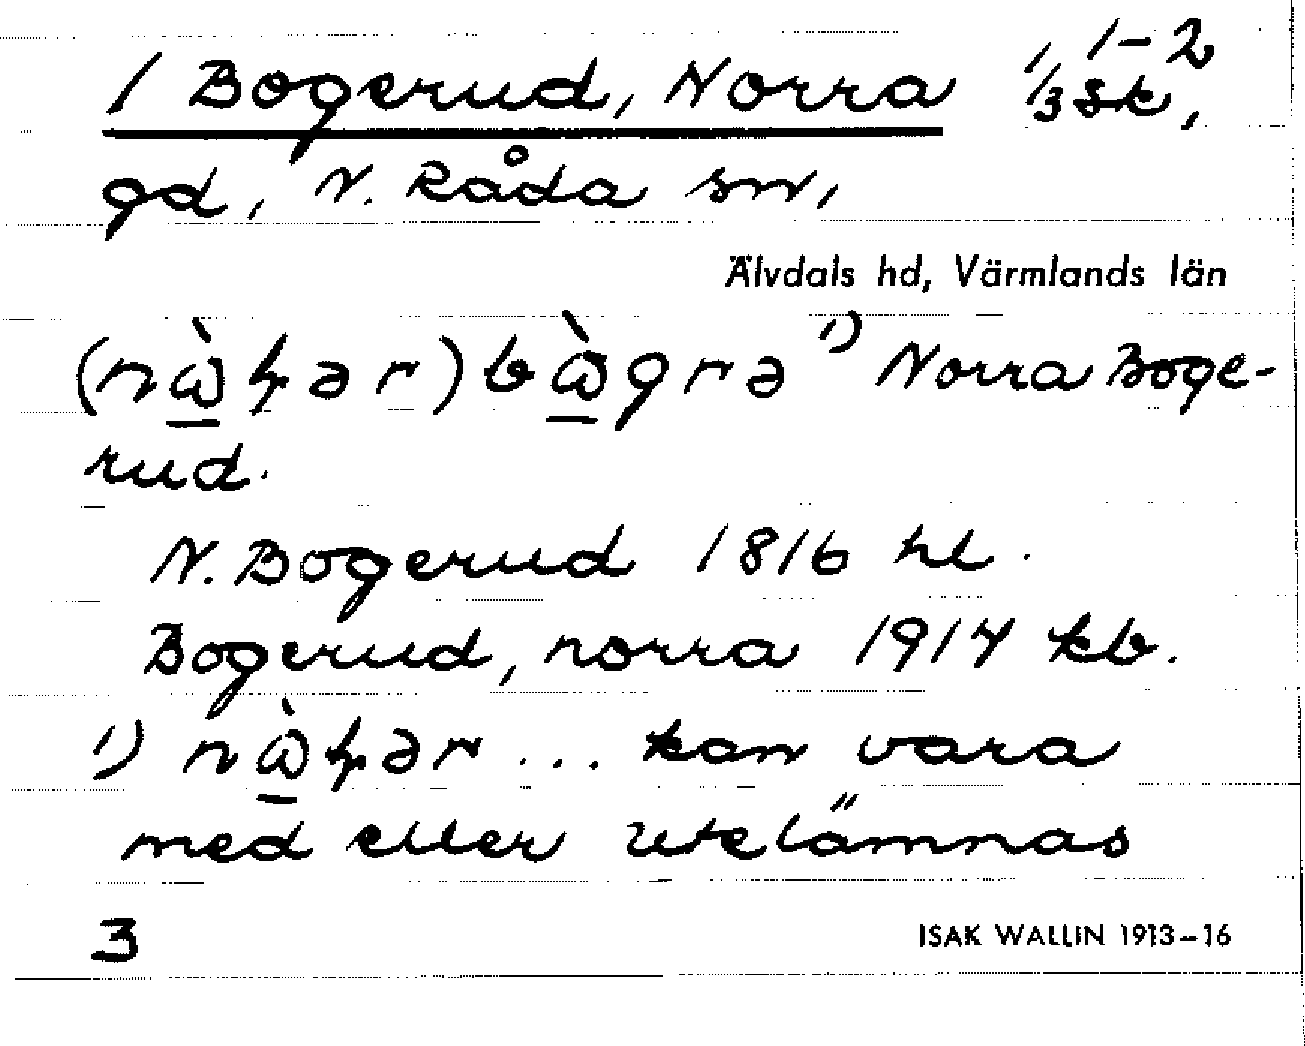 1 Bogerud, Norra 1/3 sk, 1-2
gd, N. Råda sn,
Älvdals hd, Värmlands län
bò̲grə ¹) Norra Boge-
rud.
N. Bogerud 1816 hl.
Bogerud, norra 1914 kb.
¹) ... kan vara
med eller utelämnas
3
ISAK WALLIN 1913-16